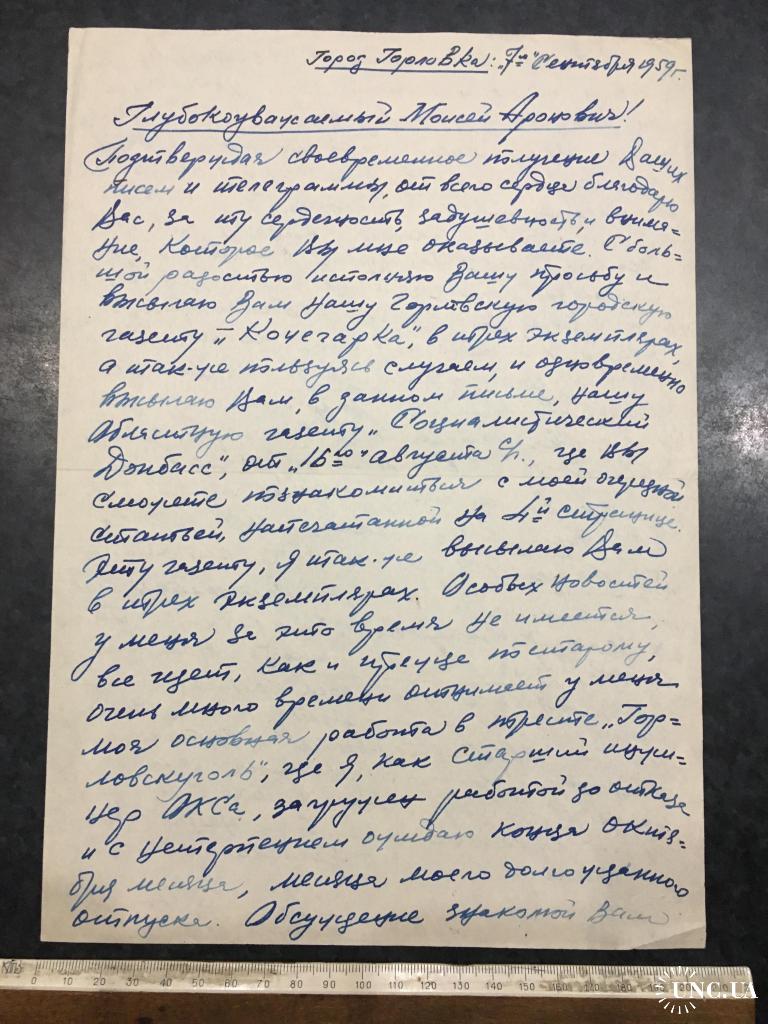 Город Горловка: "7-го" Сентября 1959г.
Глубокоуважаемый Моисей Аронович!
Подтверждая своевременное получение Ваших
писем и телеграммы, от всего сердца благодарю
Вас, за ту сердечность, задушевность и внима=
ние, которое Вы мне оказываете. С боль=
шой радостью исполняю Вашу просьбу и
высылаю Вам нашу Горловскую городскую
газету "Кочегарка", в трех экземплярах,
а так-же пользуясь случаем, и одновременно
высылаю Вам, в данном письме, нашу
областную газету "Социалистический
Донбасс", от "16-го" августа с/г., где Вы
сможете познакомиться с моей очередной
статьей, напечатанной на 4й странице.
Эту газету, я так-же высылаю Вам
в трех экземплярах. Особых новостей
у меня за это время не имеется,
все идет, как и прежде постарому,
очень много времени отнимает у меня
моя основная работа в тресте "Гор=
ловскуголь", где я, как старший инже=
нер ОКСа, загружен работой до отказа
и с нетерпением ожидаю конца октя=
бря месяца, месяца моего долгожданного
отпуска. Обсуждение знакомой Вам
0 10 20 30 40 50 60 70 80 90 100 110 120 130 140 150 160 170 180 190 200
UNC.UA